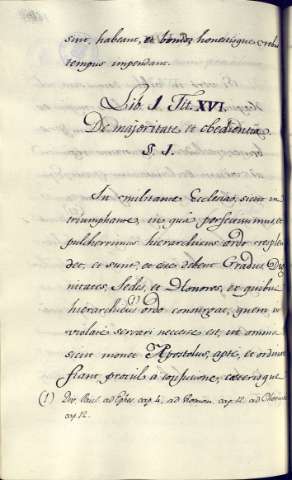 sint, habeant, et
tempus impendant.
Lib. I. Tit. XVI.
De majoritate et obedientia
§. 1.
In militante Ecclesia, sicut in
triumphante, in qua perfectissimus, et
pulcherrimus hierarchicus ordo resplen
det, et sunt, et esse debent Gradus, Dig
nitates, Sedes, et Honores, ex quibus
hierarchicus ordo consurgat, quem in
violate servari necesse est, ut omnia
sicut monet Apostolus, apte, et ordinate
fiant, procul a confusione, caeterisque
(1) Div. Paul. ad Ephes. cap. 4. ad Roman. cap. 12. ad
cap. 12.